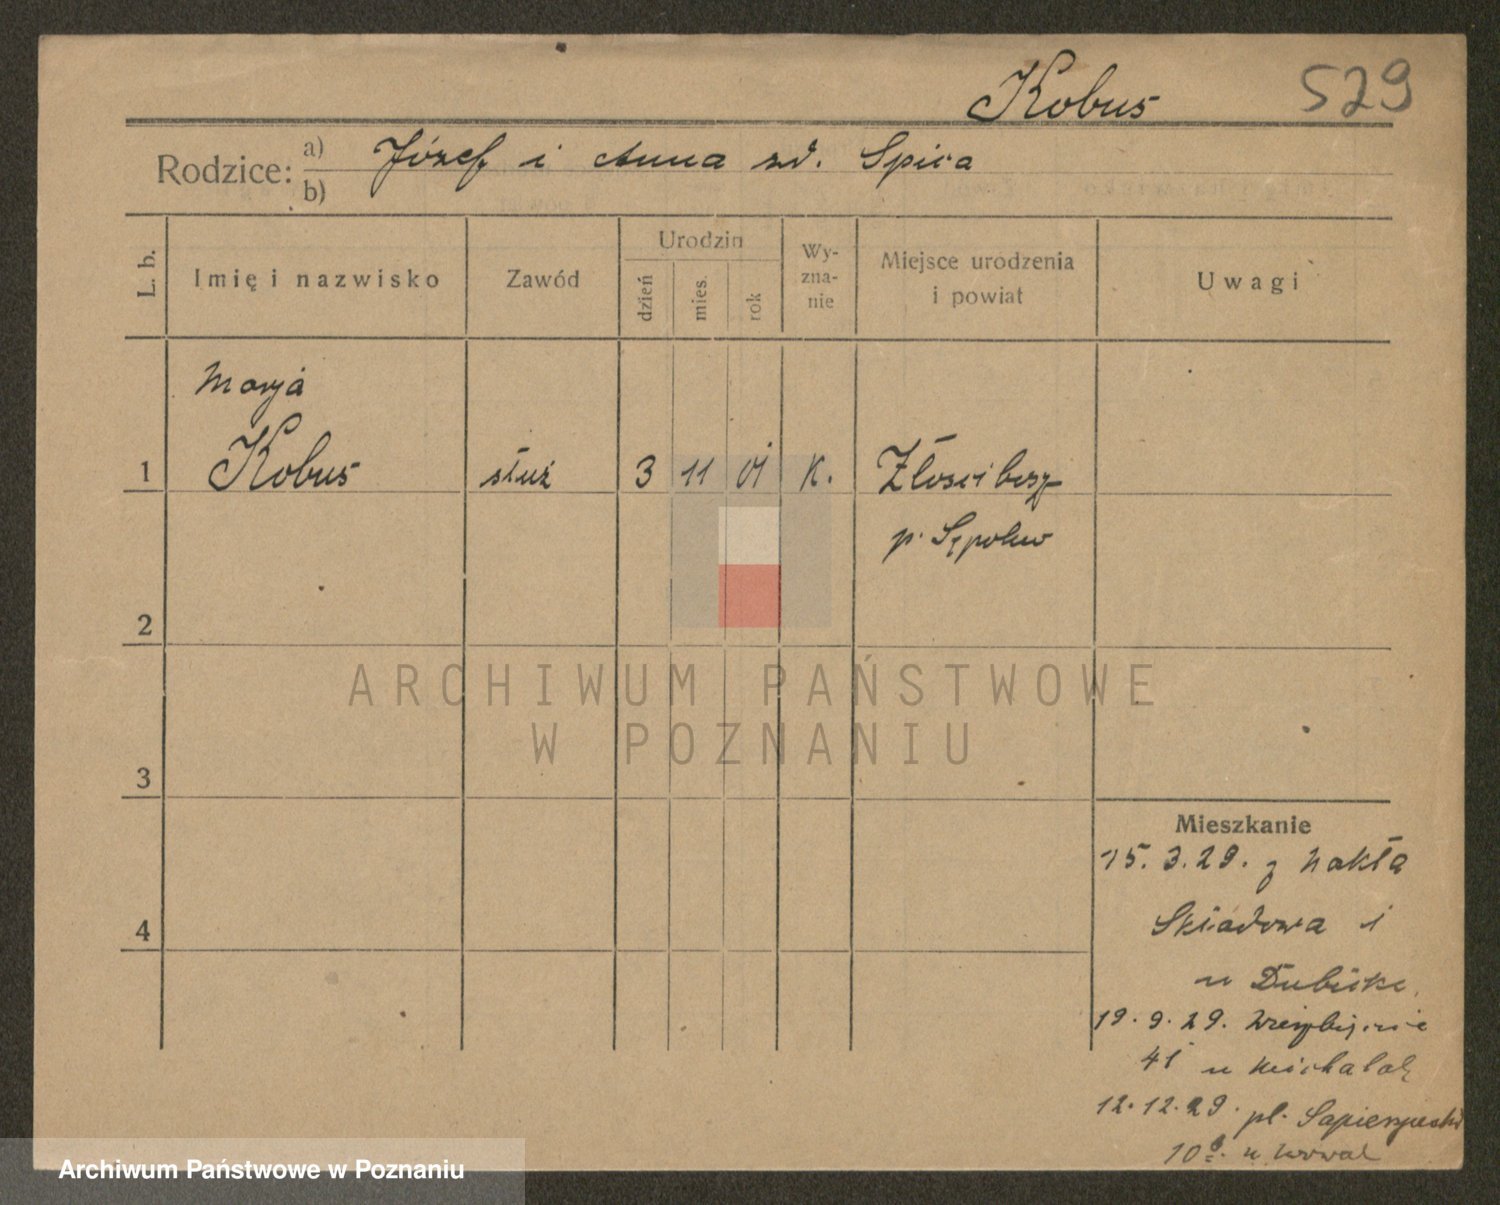 Kobus 529
Rodzice: a) Józef i Anna zd. Spica
b)
L. b. Imię i nazwisko Zawód Urodzin dzień mies. rok Wy-zna-nie Miejsce urodzenia i powiat Uwagi
Marja
1 Kobus służ 3 11 01 K.
p. Sępolno
2
3
4
Mieszkanie
15. 3. 29. z Nakła
Składowa 1
u
19. 9. 29.
41 u Michalak
12. 12. 29. pl.
10 u
ARCHIWUM PAŃSTWOWE
W POZNANIU
Archiwum Państwowe w Poznaniu